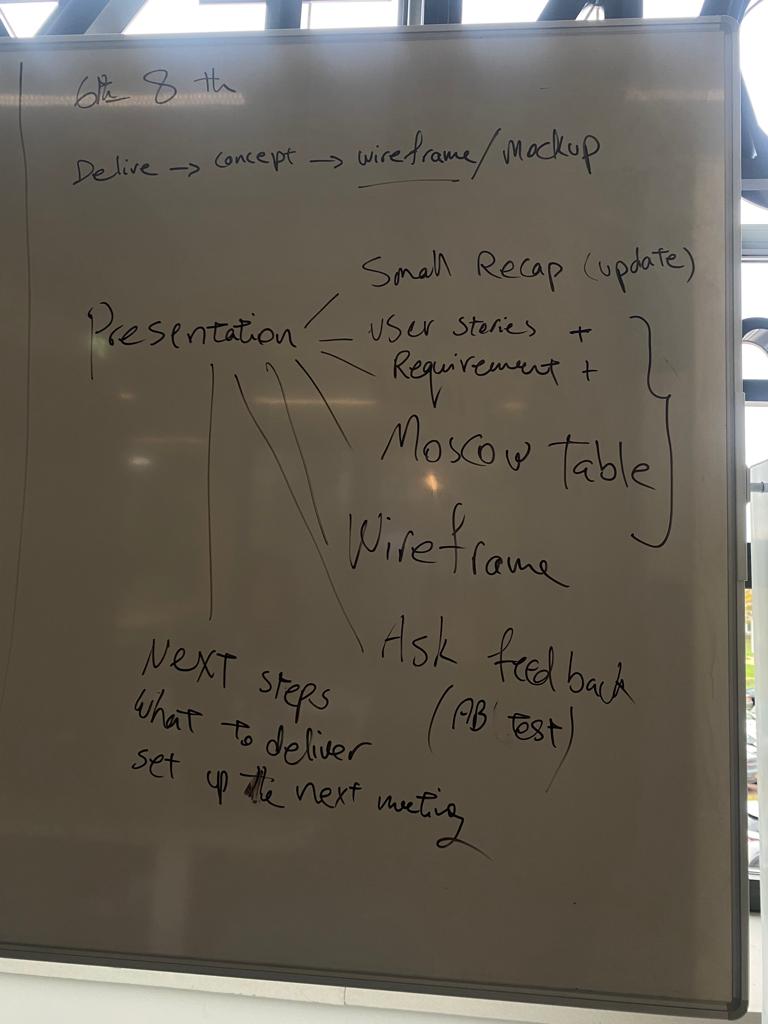 6th 8 th
Delive → concept → wireframe/Mockup
Small Recap (update)
Presentation
user stories +
Requirement +
Moscow Table
Wireframe
Ask feedback
(AB test)
Next steps
What to deliver
set up the next meeting